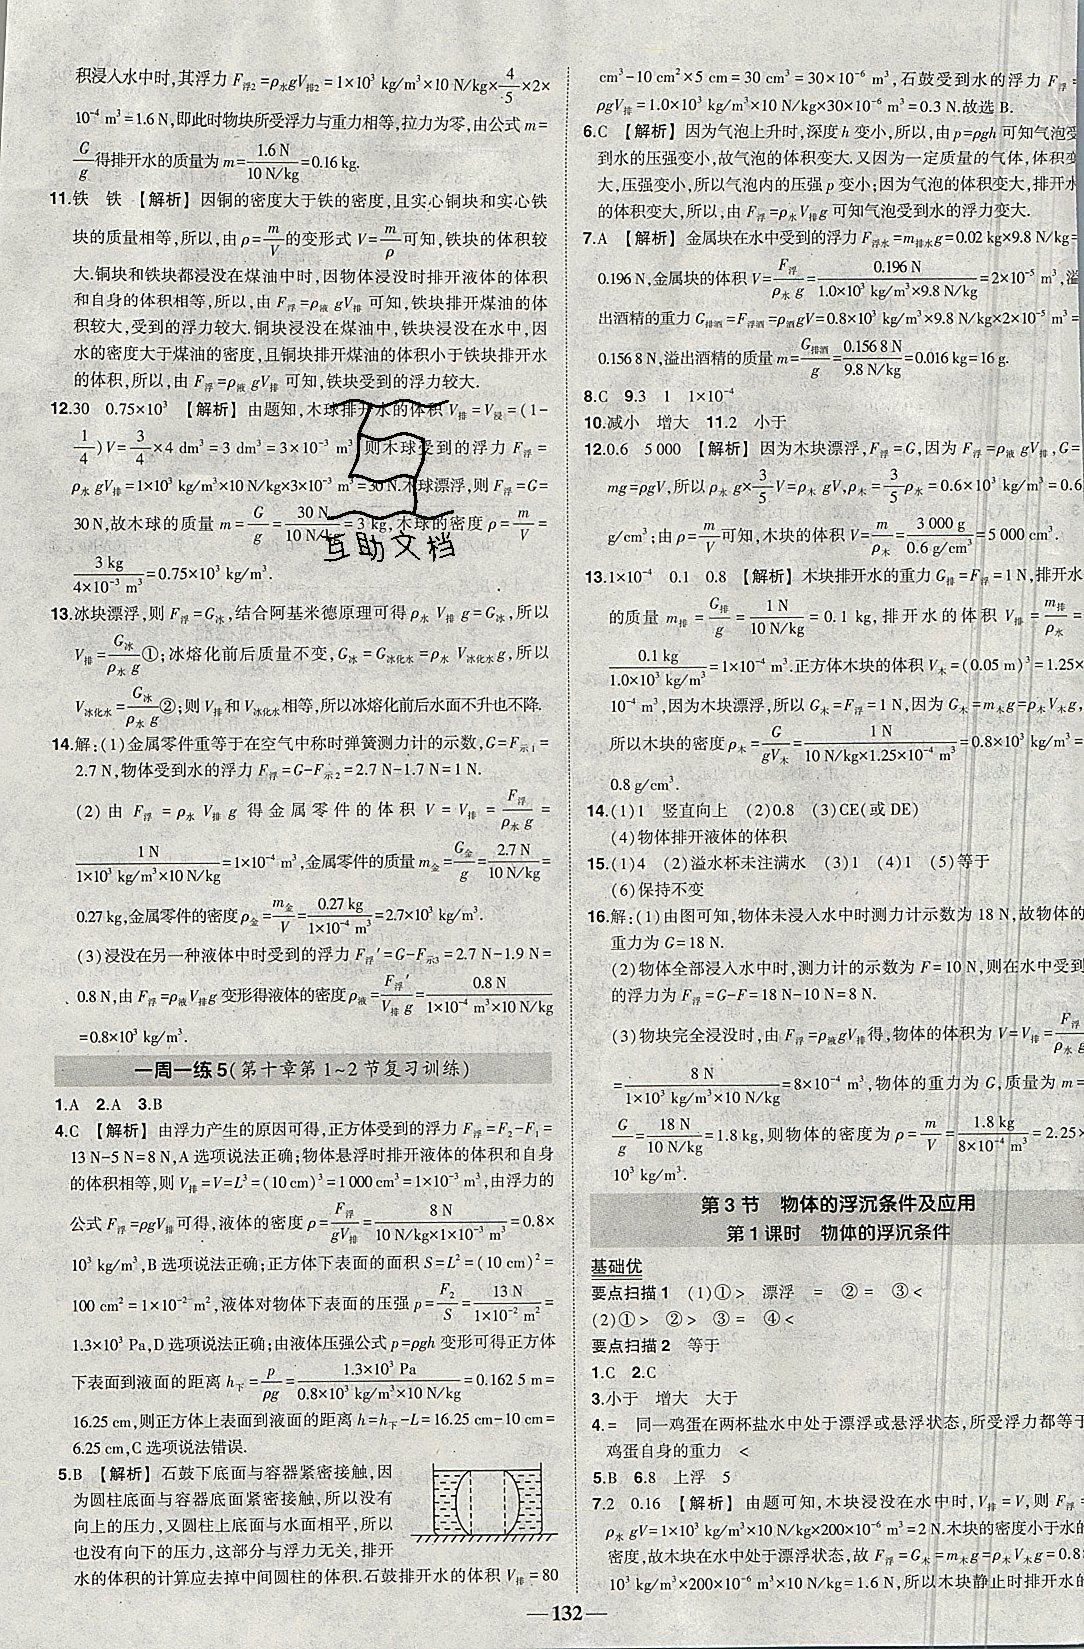 积浸入水中时,其浮力 F浮2=ρ水gV排2=1×10³ kg/m³×10 N/kg×4/5×2×
10⁻⁴ m³=1.6 N,即此时物块所受浮力与重力相等,拉力为零,由公式 m=
G/g得排开水的质量为 m=1.6 N/10 N/kg=0.16 kg.
11.铁　铁　【解析】　因铜的密度大于铁的密度,且实心铜块和实心铁
块的质量相等,所以,由 ρ=m/V的变形式 V=m/ρ可知,铁块的体积较
大.铜块和铁块都浸没在煤油中时,因物体浸没时排开液体的体积
和自身的体积相等,所以,由 F浮=ρ液 gV排 可知,铁块排开煤油的体
积较大,受到的浮力较大.铜块浸没在煤油中,铁块浸没在水中,因
水的密度大于煤油的密度,且铜块排开煤油的体积小于铁块排开水
的体积,所以,由 F浮=ρ液 gV排 可知,铁块受到的浮力较大.
12.30　0.75×10³　【解析】　由题知,木球排开水的体积 V排=V浸=(1-
1/4)V=3/4×4 dm³=3 dm³=3×10⁻³ m³,则木球受到的浮力 F浮=
ρ水 gV排=1×10³ kg/m³×10 N/kg×3×10⁻³ m³=30 N.木球漂浮,则 F浮=G=
30 N,故木球的质量 m=G/g=30 N/10 N/kg=3 kg,木球的密度 ρ=m/V=
3 kg/4×10⁻³ m³=0.75×10³ kg/m³.
互助文档
13.冰块漂浮,则 F浮=G冰,结合阿基米德原理可得 ρ水 V排 g=G冰,所以
V排=G冰/ρ水 g①;冰熔化前后质量不变,G冰=G冰化水=ρ水 V冰化水g,所以
V冰化水=G冰/ρ水 g②;则 V排和 V冰化水相等,所以冰熔化前后水面不升也不降.
14.解:(1)金属零件重等于在空气中称时弹簧测力计的示数,G=F示1=
2.7 N,物体受到水的浮力 F浮=G-F示2=2.7 N-1.7 N=1 N.
(2)由 F浮=ρ水 V排 g 得金属零件的体积 V=V排=F浮/ρ水 g=
1 N/1×10³ kg/m³×10 N/kg=1×10⁻⁴ m³,金属零件的质量 m金=G金/g=2.7 N/10 N/kg=
0.27 kg,金属零件的密度 ρ金=m金/V=0.27 kg/1×10⁻⁴ m³=2.7×10³ kg/m³.
(3)浸没在另一种液体中时受到的浮力 F浮′=G-F示3=2.7 N-1.9 N=
0.8 N,由 F浮=ρ液V排g 变形得液体的密度 ρ液=F浮′/V排 g=0.8 N/1×10⁻⁴ m³×10 N/kg
=0.8×10³ kg/m³.
一周一练 5(第十章第 1~2 节复习训练)
1.A　2.A　3.B
4.C　【解析】　由浮力产生的原因可得,正方体受到的浮力 F浮=F₂-F₁=
13 N-5 N=8 N,A 选项说法正确;物体悬浮时排开液体的体积和自身
的体积相等,则 V排=V=L³=(10 cm)³=1 000 cm³=1×10⁻³ m³,由浮力的
公式 F浮=ρgV排可得,液体的密度 ρ=F浮/gV排=8 N/10 N/kg×1×10⁻³ m³=0.8×
10³ kg/m³,B 选项说法正确;正方体下表面的面积 S=L²=(10 cm)²=
100 cm²=1×10⁻² m²,液体对物体下表面的压强 p=F₂/S=13 N/1×10⁻² m²=
1.3×10³ Pa,D 选项说法正确;由液体压强公式 p=ρgh 变形可得正方体
下表面到液面的距离 h下=p/ρg=1.3×10³ Pa/0.8×10³ kg/m³×10 N/kg=0.162 5 m=
16.25 cm,则正方体上表面到液面的距离 h=h下-L=16.25 cm-10 cm=
6.25 cm,C 选项说法错误.
5.B　【解析】　石鼓下底面与容器紧密接触,因
为圆柱底面与容器底面紧密接触,所以没有
向上的压力,又圆柱上底面与水面相平,所以
也没有向下的压力,这部分与浮力无关,排开
水的体积的计算应去掉中间圆柱的体积.石鼓排开水的体积 V排=80
cm³-10 cm²×5 cm=30 cm³=30×10⁻⁶ m³,石鼓受到水的浮力 F浮=
ρgV排=1.0×10³ kg/m³×10 N/kg×30×10⁻⁶ m³=0.3 N.故选 B.
6.C　【解析】　因为气泡上升时,深度 h 变小,所以,由 p=ρgh 可知气泡受
到水的压强变小,故气泡的体积变大.又因为一定质量的气体,体积变
大,压强变小,所以气泡内的压强 p 变小;因为气泡的体积变大,排开水
的体积变大,所以,由 F浮=ρ水 V排g 可知气泡受到水的浮力变大.
7.A　【解析】　金属块在水中受到的浮力 F浮水=m排水g=0.02 kg×9.8 N/kg=
0.196 N,金属块的体积 V=F浮/ρ水 g=0.196 N/1.0×10³ kg/m³×9.8 N/kg=2×10⁻⁵ m³,溢
出酒精的重力 G排酒=F浮酒=ρ酒gV=0.8×10³ kg/m³×9.8 N/kg×2×10⁻⁵ m³=
0.156 8 N,溢出酒精的质量 m=G排酒/g=0.156 8 N/9.8 N/kg=0.016 kg=16 g.
8.C　9.3　1　1×10⁻⁴
10.减小　增大　11.2　小于
12.0.6　5 000　【解析】　因为木块漂浮,F浮=G,因为 F浮=ρ液 gV排,G=
mg=ρgV,所以 ρ水 g×3/5V=ρ木 gV,ρ木=3/5ρ水=0.6×10³ kg/m³=0.6
g/cm³;由 ρ=m/V可知,木块的体积 V=m/ρ木=3 000 g/0.6 g/cm³=5 000 cm³.
13.1×10⁻⁴　0.1　0.8　【解析】　木块排开水的重力 G排=F浮=1 N,排开水
的质量 m排=G排/g=1 N/10 N/kg=0.1 kg,排开水的体积 V排=m排/ρ水=
0.1 kg/1.0×10³ kg/m³=1×10⁻⁴ m³.正方体木块的体积 V木=(0.05 m)³=1.25×
10⁻⁴ m³,因为木块漂浮,所以 G木=F浮=1 N,因为 G木=m木g=ρ木V木g,
所以木块的密度 ρ木=G/gV木=1 N/10 N/kg×1.25×10⁻⁴ m³=0.8×10³ kg/m³=
0.8 g/cm³.
14.(1)1　竖直向上　(2)0.8　(3)CE(或 DE)
(4)物体排开液体的体积
15.(1)4　(2)溢水杯未注满水　(3)1　(4)1　(5)等于
(6)保持不变
16.解:(1)由图可知,物体未浸入水中时测力计示数为 18 N,故物体的
重力为 G=18 N.
(2)物体全部浸入水中时,测力计的示数为 F=10 N,则在水中受到
的浮力为 F浮=G-F=18 N-10 N=8 N.
(3)物块完全浸没时,由 F浮=ρ液gV排得,物体的体积为 V=V排=F浮/ρ水 g
=8 N/1×10³ kg/m³×10 N/kg=8×10⁻⁴ m³,物体的重力为 G,质量为 m=
G/g=18 N/10 N/kg=1.8 kg,则物体的密度为 ρ=m/V=1.8 kg/8×10⁻⁴ m³=2.25×
10³ kg/m³.
第 3 节　物体的浮沉条件及应用
第 1 课时　物体的浮沉条件
基础优
要点扫描 1　(1)①>　漂浮　=　②=　③<
(2)①>　②>　③=　④<
要点扫描 2　等于
1.C　2.C
3.小于　增大　大于
4.=　同一鸡蛋在两杯盐水中处于漂浮或悬浮状态,所受浮力都等于
鸡蛋自身的重力　<
5.B　6.8　上浮　5
7.2　0.16　【解析】　由题可知,木块浸没在水中时,V排=V,则 F浮=
ρ水 gV=1×10³ kg/m³×10 N/kg×200×10⁻⁶ m³=2 N.木块的密度小于水的
密度,故木块在水中处于漂浮状态,故 F浮=G木=m木g=ρ木 V木g=0.8×
10³ kg/m³×200×10⁻⁶ m³×10 N/kg=1.6 N,所以木块静止时排开水的
132